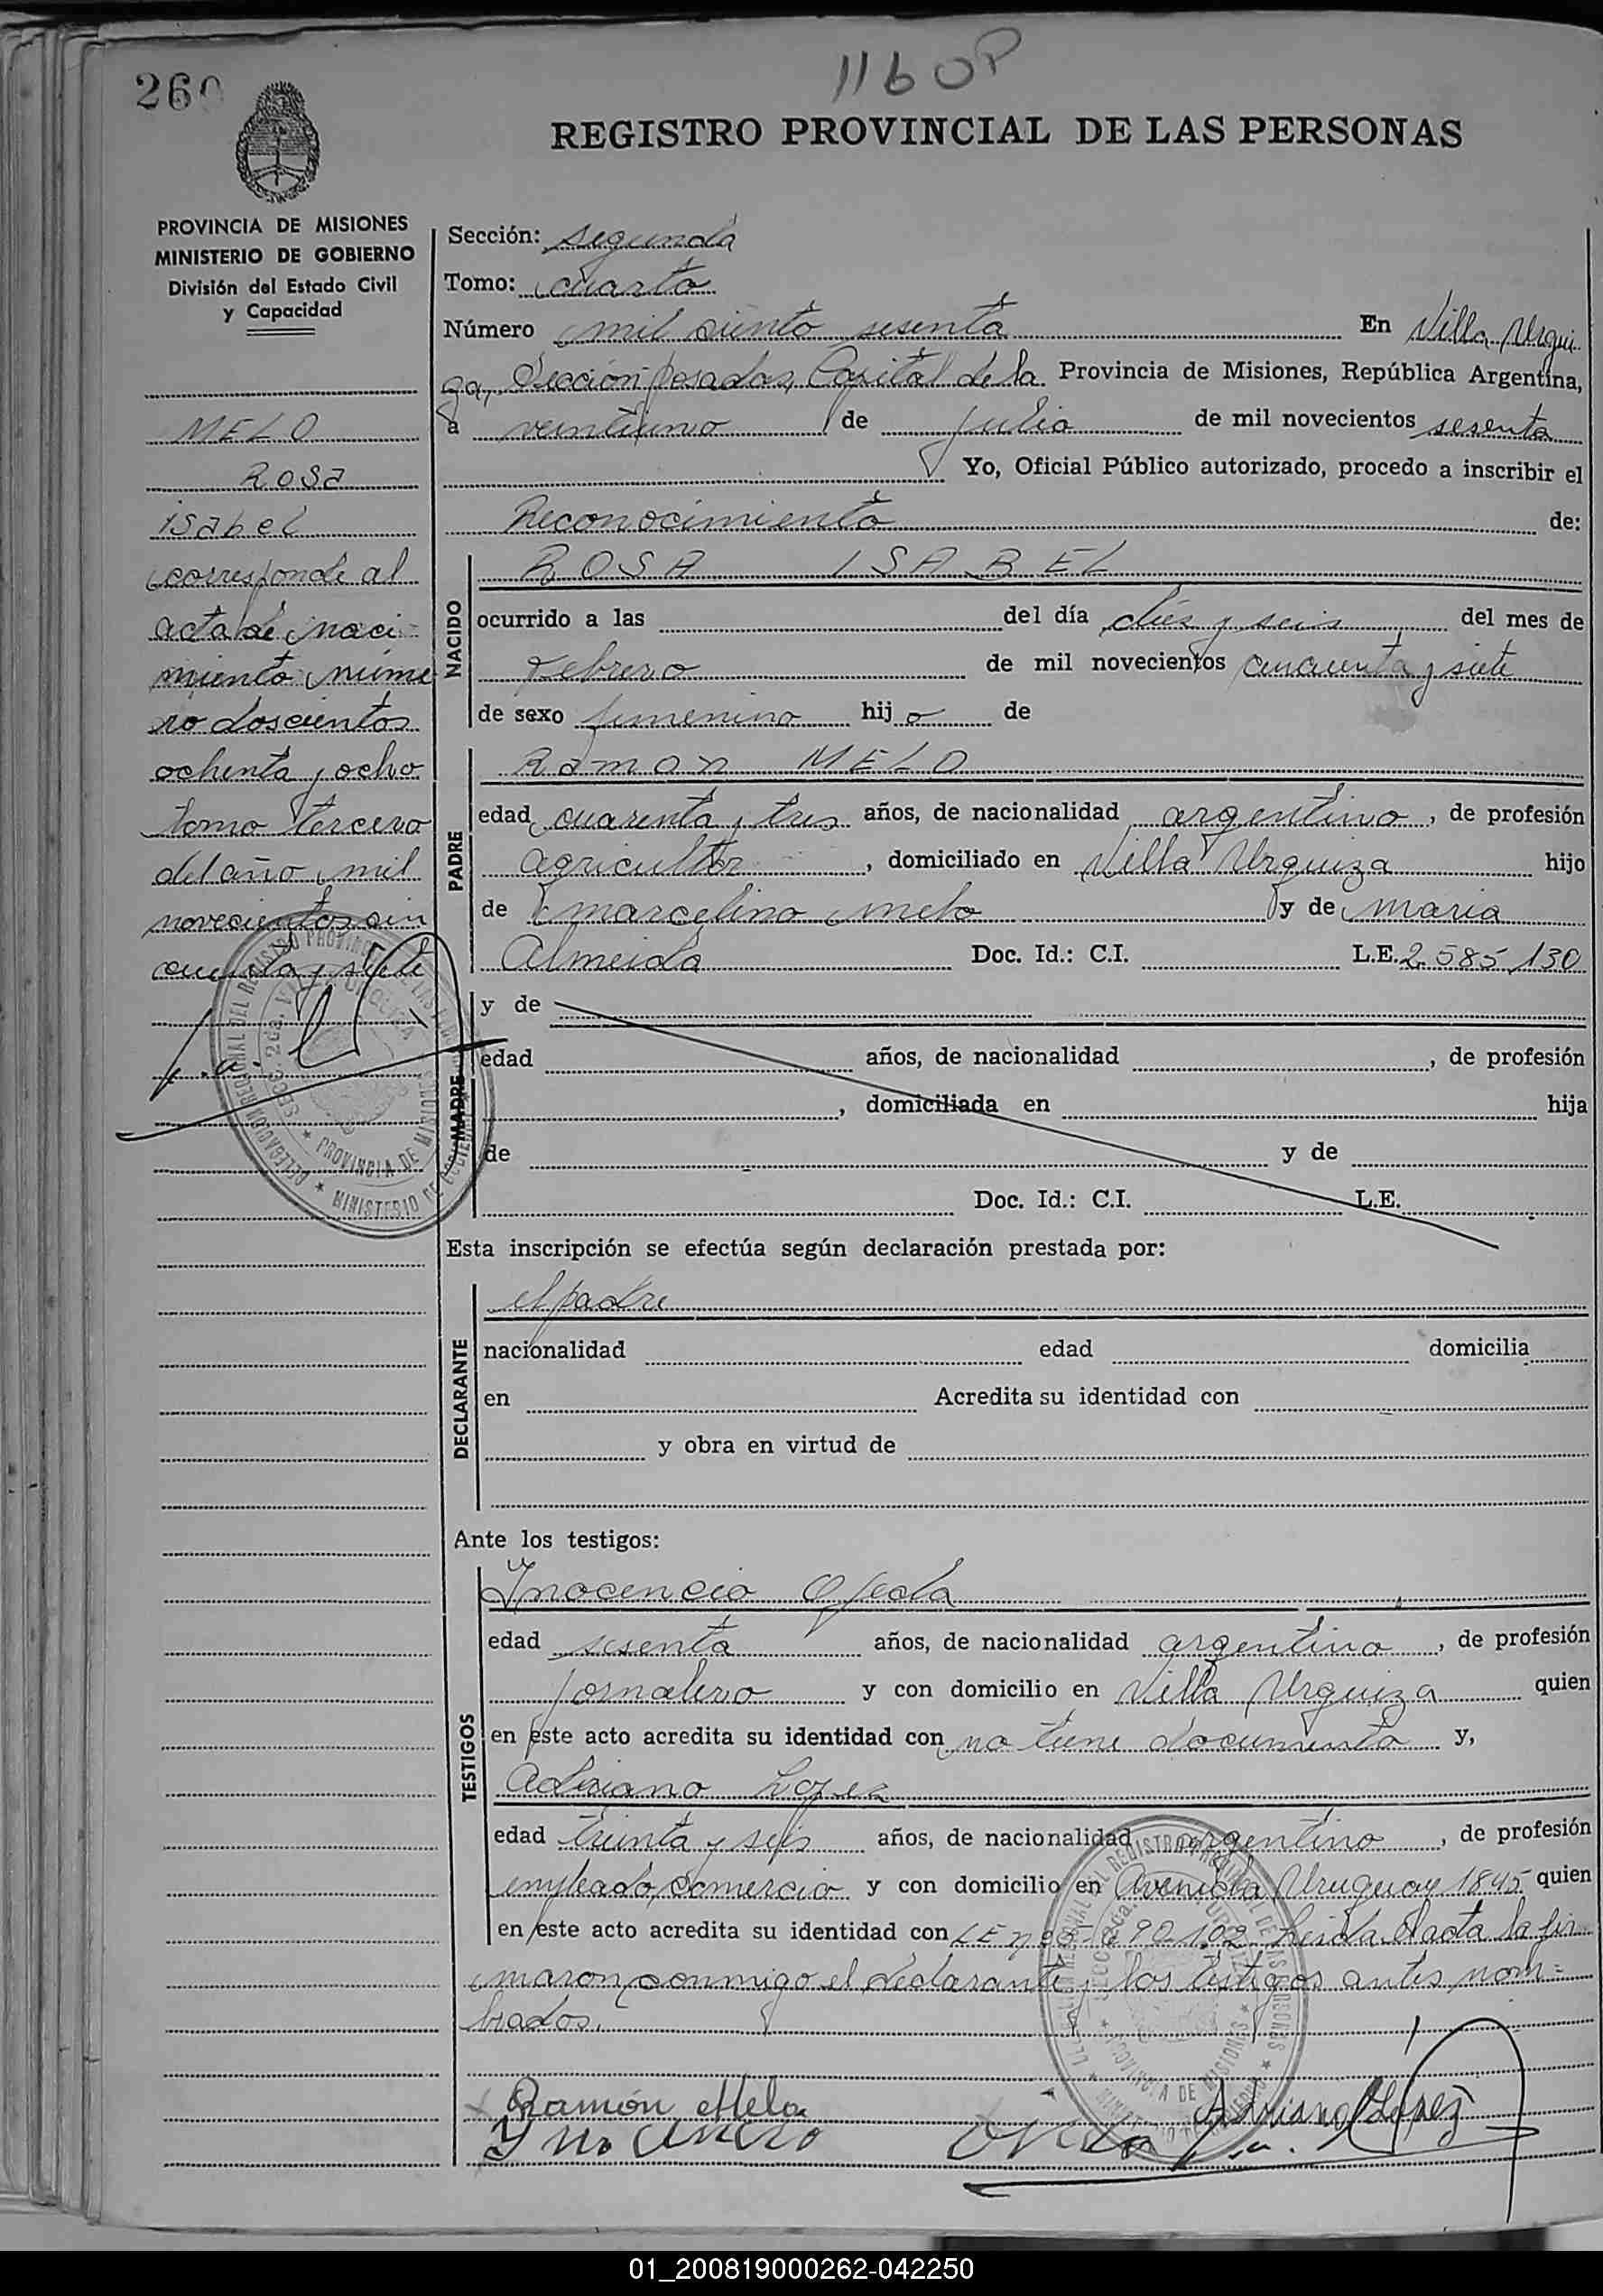 1160P
260
REGISTRO PROVINCIAL DE LAS PERSONAS
PROVINCIA DE MISIONES
MINISTERIO DE GOBIERNO
División del Estado Civil
y Capacidad
MELO
ROSA
ISabel
corresponde al
acta de naci-
miento núme
ro doscientos
ochenta y ocho
tomo tercero
del año mil
novecientos cin
cuenta y siete
Sección: segunda
Tomo: cuarto
Número mil ciento sesenta En Villa Urqui
za, Sección Posadas, Capital de la Provincia de Misiones, República Argentina,
a veintiuno de julio de mil novecientos sesenta
Yo, Oficial Público autorizado, procedo a inscribir el
Reconocimiento de:
NACIDO
ROSA ISABEL
ocurrido a las del día diés y seis del mes de
Febrero de mil novecientos cincuenta y siete
de sexo femenino hij a de
PADRE
Ramon MELO
edad cuarenta y tres años, de nacionalidad argentino, de profesión
agricultor, domiciliado en Villa Urquiza hijo
de marcelino melo y de maria
Almeida Doc. Id.: C.I. L.E. 2.585.130
MADRE
y de
edad años, de nacionalidad , de profesión
, domiciliada en hija
de y de
Doc. Id.: C.I. L.E.
Esta inscripción se efectúa según declaración prestada por:
DECLARANTE
el padre
nacionalidad edad domicilia
en Acredita su identidad con
y obra en virtud de
Ante los testigos:
TESTIGOS
Inocencio Ojeda
edad sesenta años, de nacionalidad argentino, de profesión
jornalero y con domicilio en Villa Urquiza quien
en este acto acredita su identidad con no tiene documento y,
Adriano Lopez
edad treinta y seis años, de nacionalidad argentino, de profesión
empleado comercio y con domicilio en Avenida Uruguay 1845 quien
en este acto acredita su identidad con LE Leida el acta la fir
maron conmigo el declarante y los testigos antes nom=
brados.
Ramón Melo
Adriano López
Inocencio Ojeda
01_200819000262-042250